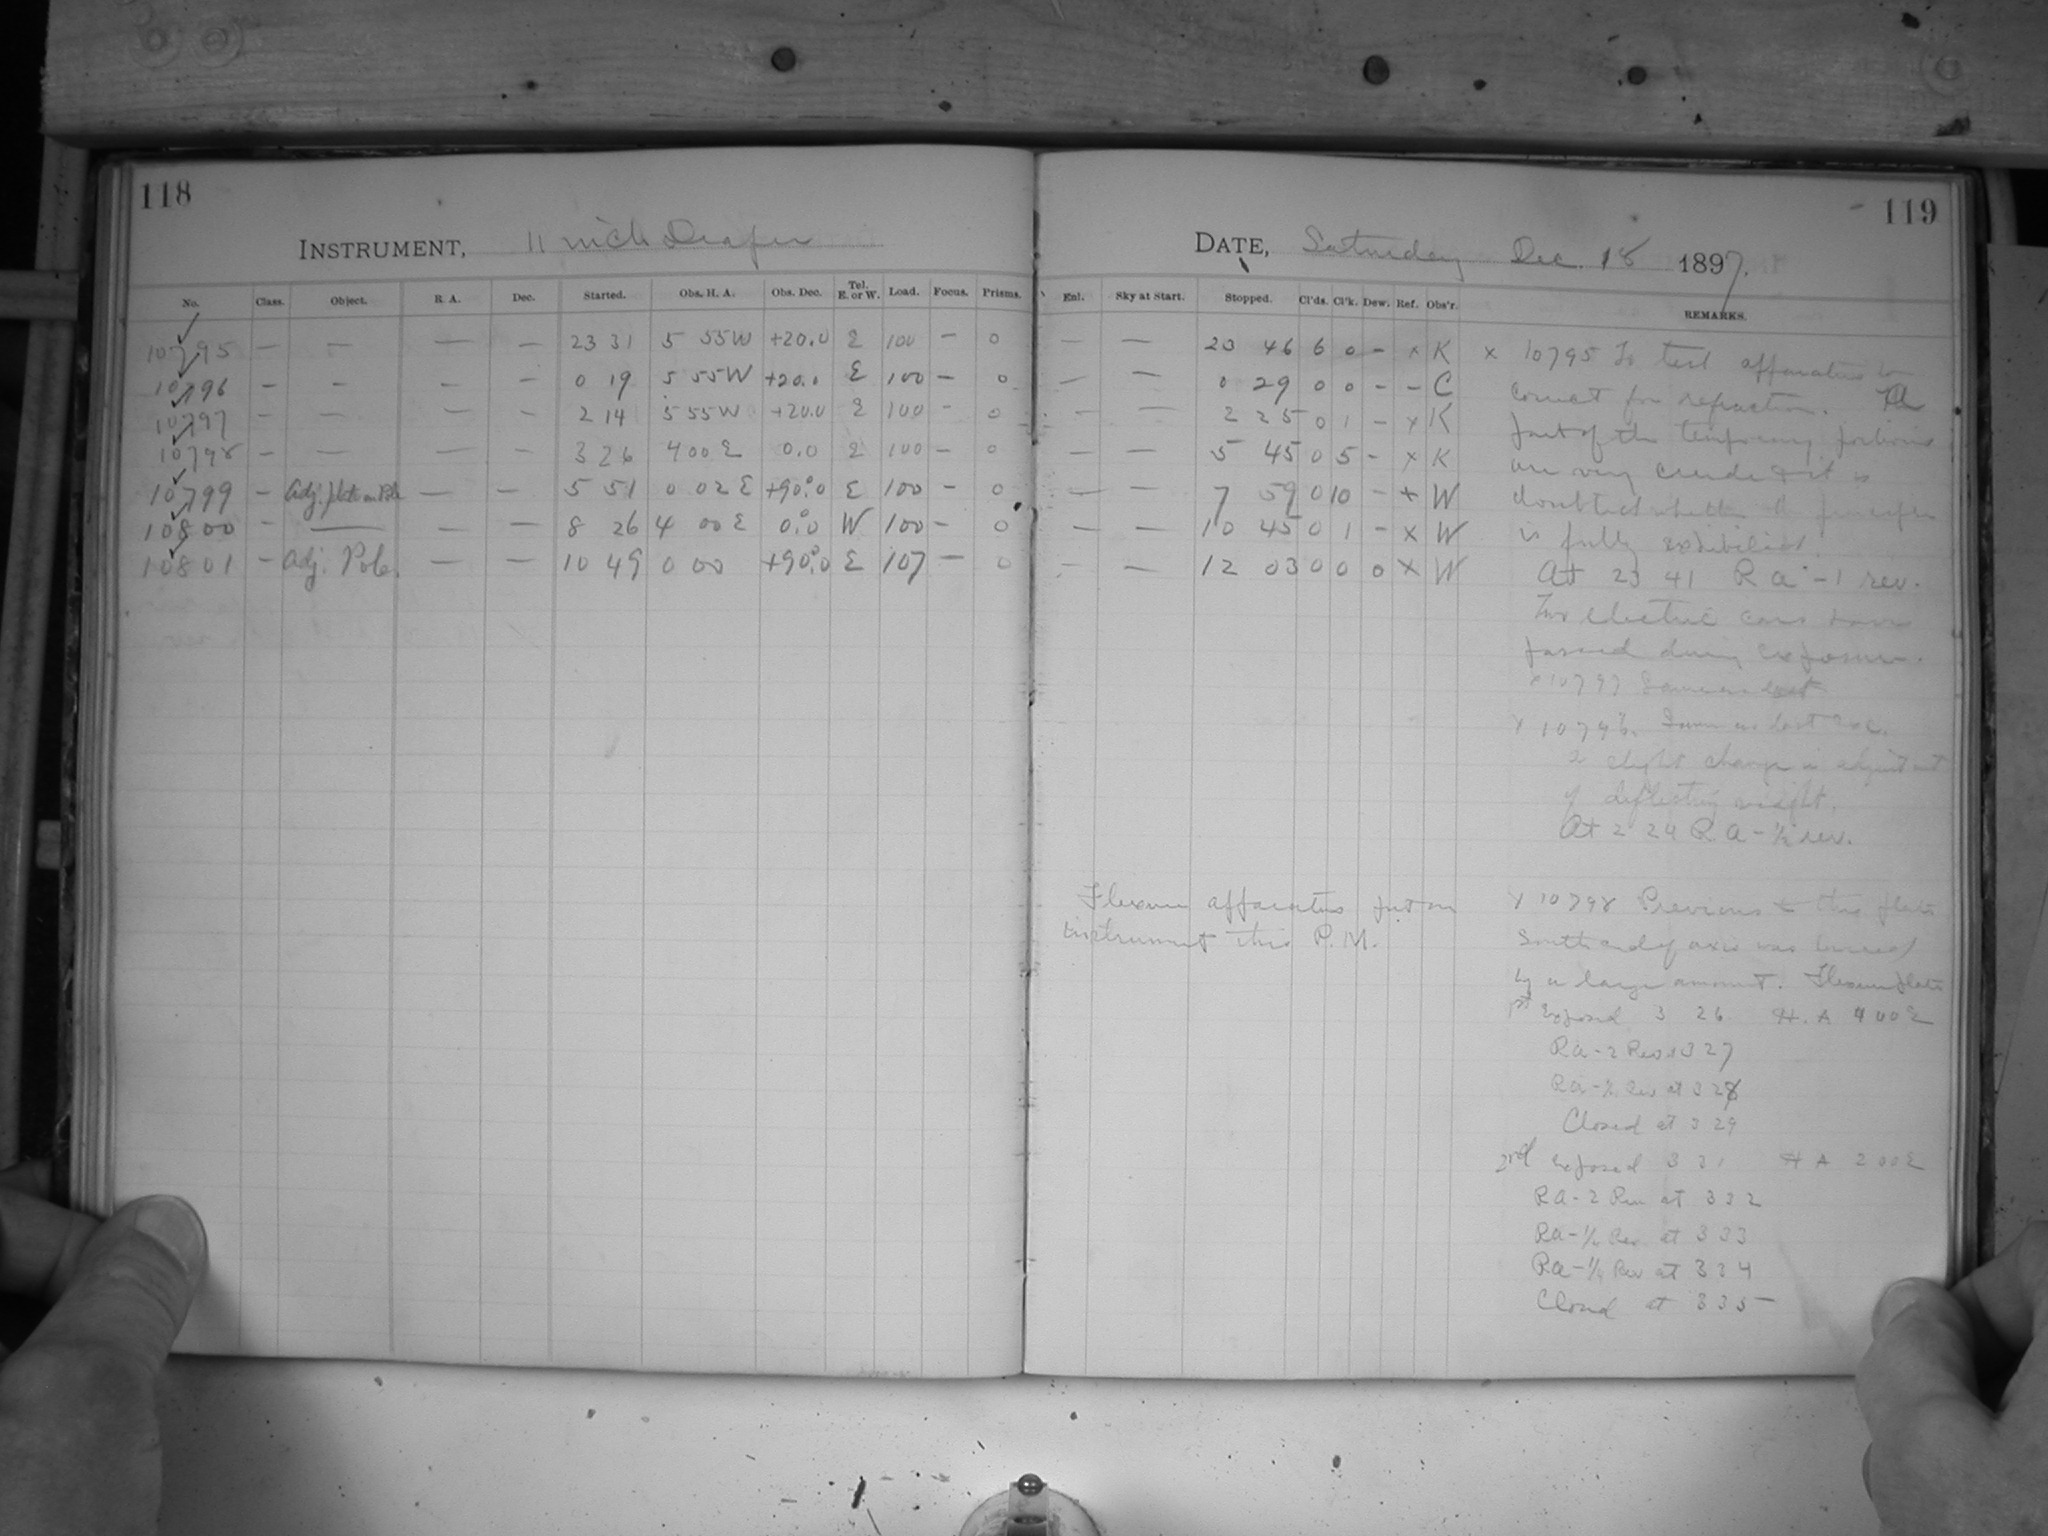 118
INSTRUMENT, 11 inch Draper
No. Class. Object. R. A. Dec. Started. Obs. H. A. Obs. Dec. Tel. E. or W. Load. Focus. Prisms.
10795 — — — — 23 31 5 55W +20.0 E 100 — 0
10796 — — — — 0 19 5 55W +20.0 E 100 — 0
10797 — — — — 2 14 5 55W +20.0 E 100 - 0
10798 — — — — 3 26 4 00 E 0.0 E 100 — 0
10799 — Adj. plate on Pole — — 5 51 0 02 E +90.0 E 100 — 0
10800 — — — — 8 26 4 00 E 0.0 W 100 — 0
10801 — Adj. Pole. — — 10 49 0 00 +90.0 E 107 — 0
119
DATE, Saturday Dec. 18 1897.
Enl. Sky at Start. Stopped. Cl'ds. Cl'k. Dew. Ref. Obs'r. REMARKS.
— — 23 46 6 0 - x K
— — 0 29 0 0 - - C
— — 2 25 0 1 - x K
— — 5 45 0 5 - x K
— — 7 59 0 10 - x W
— — 10 45 0 1 - x W
— — 12 03 0 0 0 x W
x 10795 To test apparatus to
correct for refraction. The
part of the temporary portions
are very crude & it is
doubted whether the principle
is fully exhibited.
At 23 41 R a -1 rev.
Two electric cars have
passed during exposure.
x 10797 Same as last
x 10796. Same as last exc.
a slight change in adjustment
of deflecting weight.
At 2 24 R. A - ½ rev.
Flexure apparatus put on
instrument this P.M.
x 10798 Previous to this plate
South end of axis was
by a large amount. Flexure plate
1st Exposed 3 26 H. A 4 00 E
Ra - 2 Rev at 3 27
Ra - ½ Rev at 3 28
Closed at 3 29
2nd Exposed 3 31 H A 2 00 E
RA - 2 Rev at 3 32
Ra - ½ Rev at 3 33
Ra - ¼ Rev at 3 34
Closed at 3 35